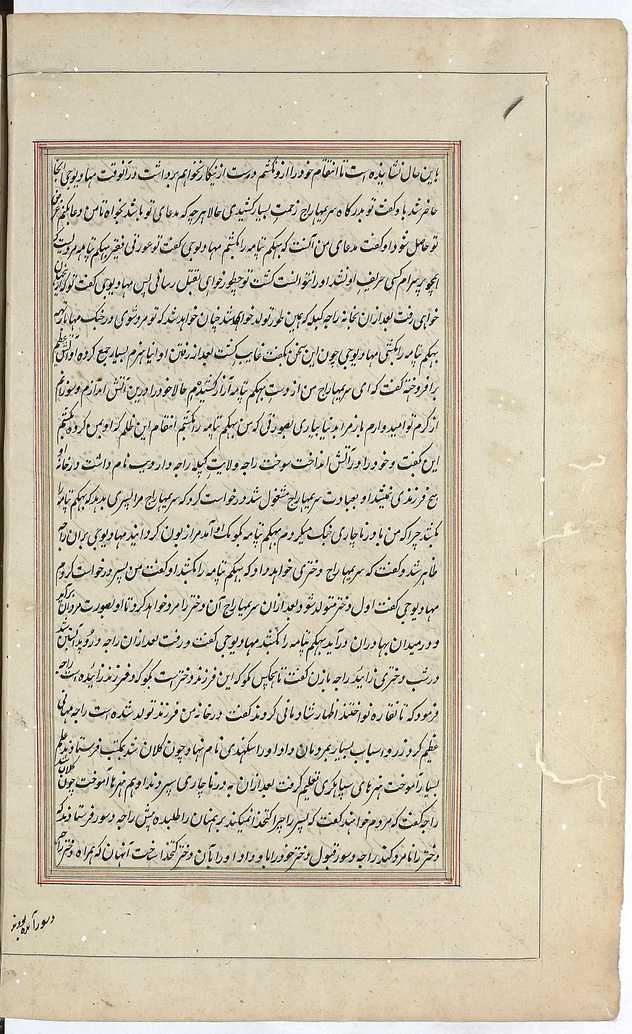 باین حال نشانیده است تا انتقام خود را ازو نکشم دست از نیکار نخواهم برداشت در آنوقت مهادیوجی انجا
حاضر شد باو گفت تو بدرگاه سریمهاراج زحمت بسیار کشیدی حالا هر چه که مدعای تو باشد بخواه تا من دعا بکنم
تو حاصل شود او گفت مدعای من آنست که بهیکم پتامه را بکشم مهادیوجی گفت تو عورتی فقیر بهیکم پتامه مردیست که
همچو پرسرام کسی حریف او نشد او را نتوانست کشت تو چطور خواهی بقتل رسانی پس مهادیوجی گفت تو که
خواهی رفت بعد ازان بخانهٔ راجه کنپله که همین طور تولد خواهی شد چنان خواهد شد که تو مرد شوی و در جنک مهابارته
بهیکم پتامه را بکشی مهادیوجی چون این سخن بگفت غایب گشت بعد از رفتن او انبا هیزم بسیار جمع کرده آتش عظیم
برافروخته گفت که ای سریمهاراج من از دست بهیکم پتامه آزار کشیده‌ام حالا خود را درین آتش اندازم و سوزانم
از کرم تو امیدوارم باز مرا بدنیا بیاری بصورتی که من بهیکم پتامه را بکشم انتقام این ظلم که او بمن کرده بکشم
این گفت و خود را در آتش انداخت سوخت راجه ولایت کنپله راجه دروپد نام داشت در خانه او
هیچ فرزندی نمیشد او بعبادت سریمهاراج مشغول شد درخواست کرد که سریمهاراج مرا پسری بدهد که بهیکم پتامه را
بکشد چرا که من با درناچارج جنک میکردم بهیکم پتامه بکومک او آمد مرا زبون کردانید مهادیوجی بران راجه
ظاهر شد و گفت که سریمهاراج دختری خواهد داد که بهیکم پتامه را بکشد او گفت من پسر درخواست کردم
مهادیوجی گفت اول دختر متولد شود بعد ازان سریمهاراج آن دختر را مرد خواهد کرد تا او بصورت مردان
و در میدان بهادران درآید بهیکم پتامه را بکشد مهادیوجی گفت و رفت بعد ازان راجه دروپد آبستن شد
در شب دختری زائید راجه بازن گفت تا بهیچکس نکو که این فرزند دختر است بکو که فرزند زائیده است راجه
فرمود که تا نقاره نواختند اظهار شادمانی کردند گفت در خانه من فرزند تولد شده است راجه مهمانی
عظیم کرد زر و اسباب بسیار بمردمان داد او را سکهندی نام نهاد چون کلان شد بمکتب فرستادند علم
بسیار آموخت هنرهای سپاهگری تعلیم گرفت بعد ازان به درناچارج سپردند او هم هنرها آموخت چون کلان شد
راجه گفت که مردم خواهند گفت که پسر را چرا کتخدا نمیکند برهمنان را طلبیده پیش راجه دسور فرستادند که
دختر را نامزد کند راجه دسور قبول دختر خود را باو داد او را بآن دختر کتخدا ساخت آنهان که همراه دختر راجه
دسور آمده بودند